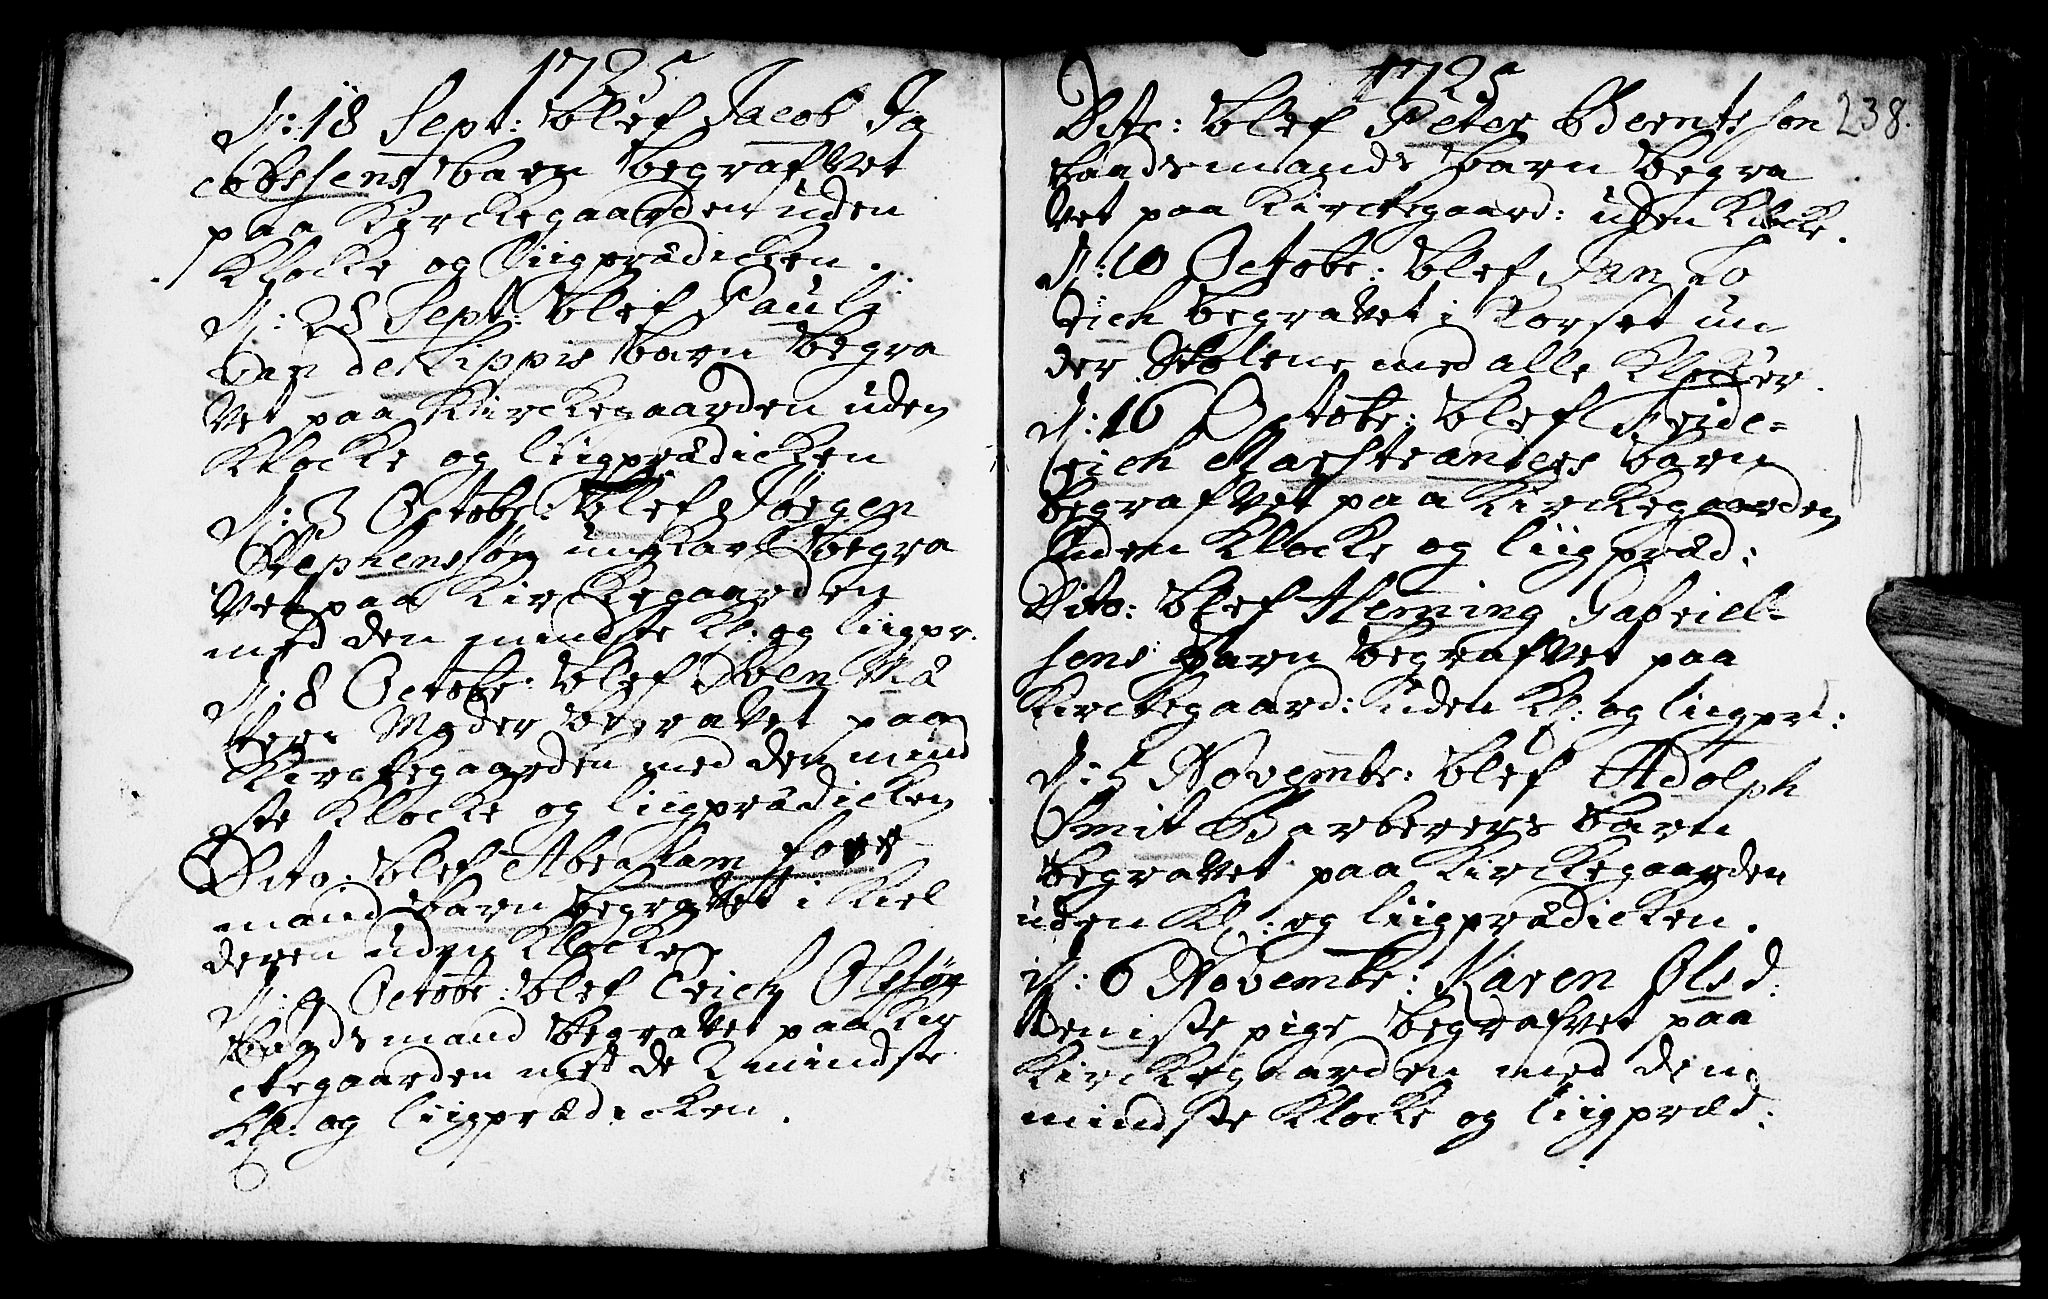 1725
D: 18 Sept: blef Jacob Ja
cobssens barn begrafvet
paa Kirckegaarden uden
Klocke og Liigprædicken.
D: 28 Sept: blef Pauly
van de Lippis barn begra
vet paa Kirckegaarden uden
Klocke og liigprædicken
D: 3 Octobr: blef Jørgen
Stephenssøn ungkarl begra
vet paa Kirckegaarden
med den mindste Kl: og liigpr.
D: 8 Octobr: blef Iven
Moder begravet paa
Kirckegaarden med den mind
ste Klocke og liigprædicken
Dito: blef Abraham
mand barn begravet i Kiel
deren uden Klocke
D: 9 Octobr: blef Erich Olssøn
Baadsmand begravet paa Kir
ckegaarden met de 2 mindste
Kl: og liigprædicken.
1725
238.
Dito: blef Peter Berntsson
baadsmands barn begra
vet paa Kirckegaard: uden Klocke.
D: 10 Octobr: blef Jan Lo
rich begravet i Korset un
der Stolene med alle Klocker.
D: 16 Octobr: blef Fride=
rich Marstranders barn
begrafvet paa Kirckegaarden
uden Klocke og liigpræd:
Dito: blef Heming Gabriel=
sens barn begrafvet paa
Kirckegaard: uden Kl: og liigprd:
D: 5 Novembr: blef Adolph
Smit Barberers barn
begravet paa Kirckegaarden
uden Kl: og liigprædicken.
D: 6 Novembr: Karen Olsd:
tieniste pige begrafvet paa
Kirckegaarden med den
mindste Klocke og liigpræd: